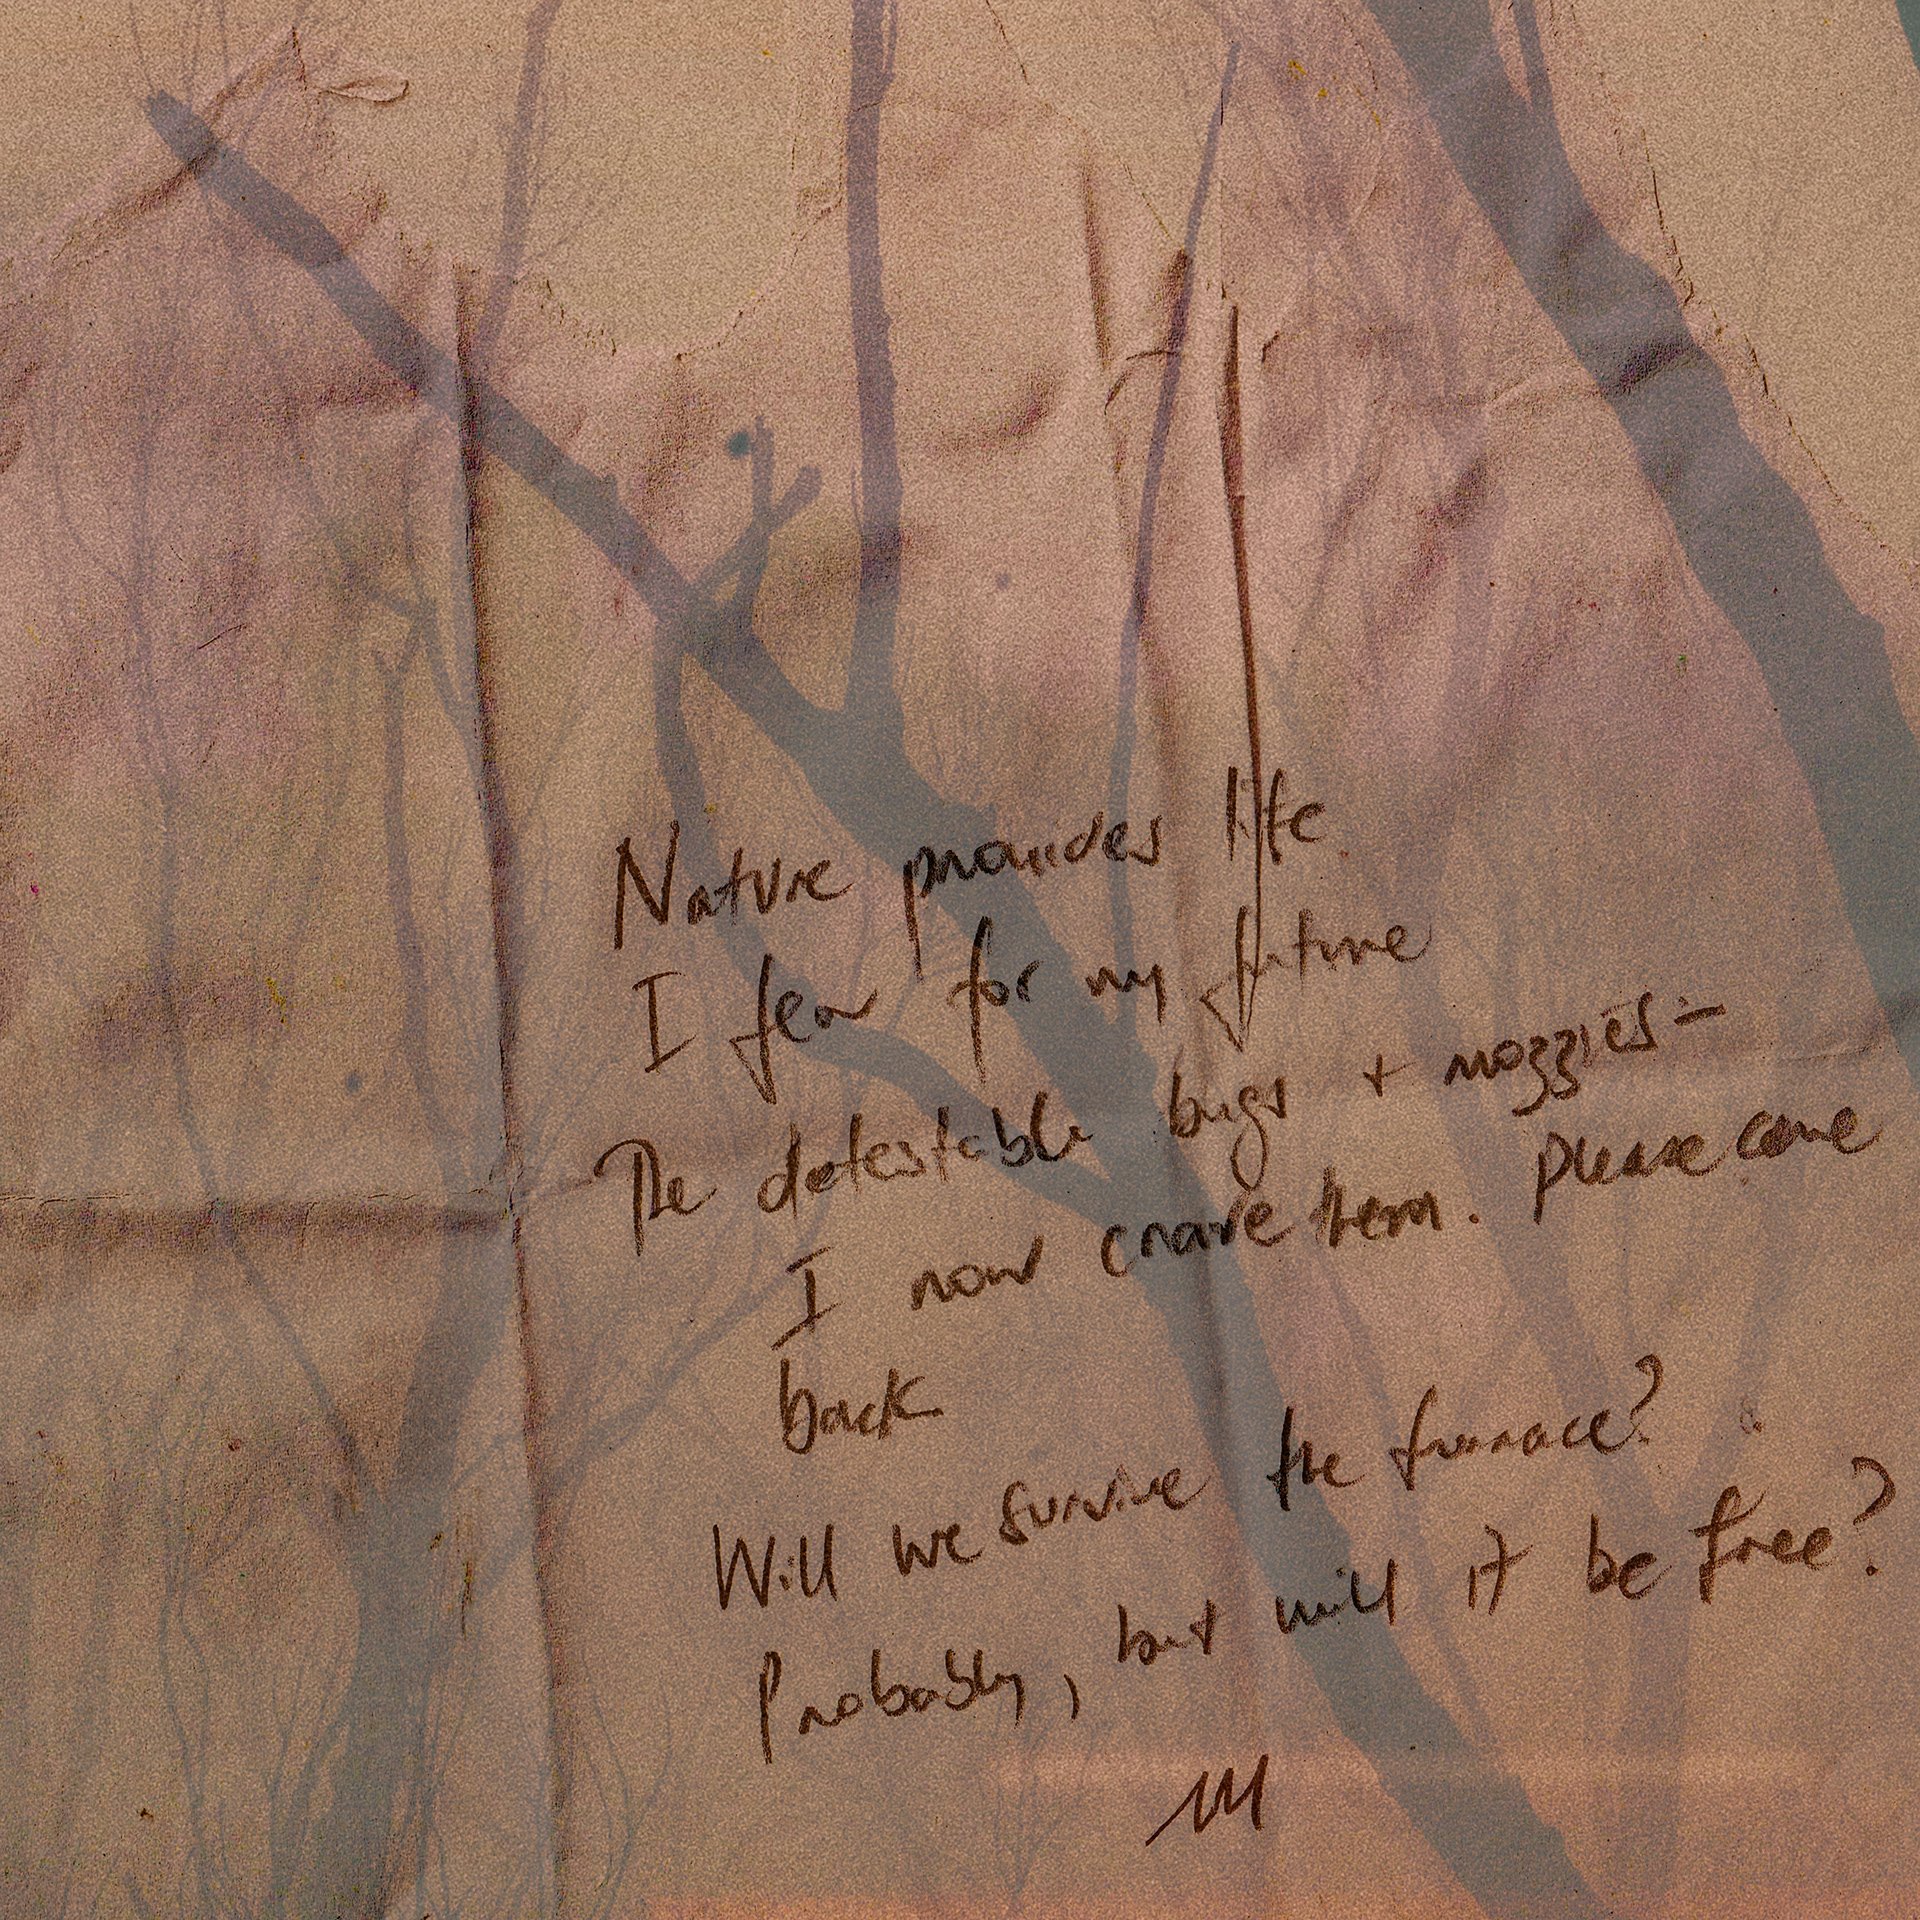 Nature provides life
I fear for my future
The detestable bugs + mozzies –
I now crave them. Please come
back
Will we survive the furnace?
Probably, but will it be free?
M